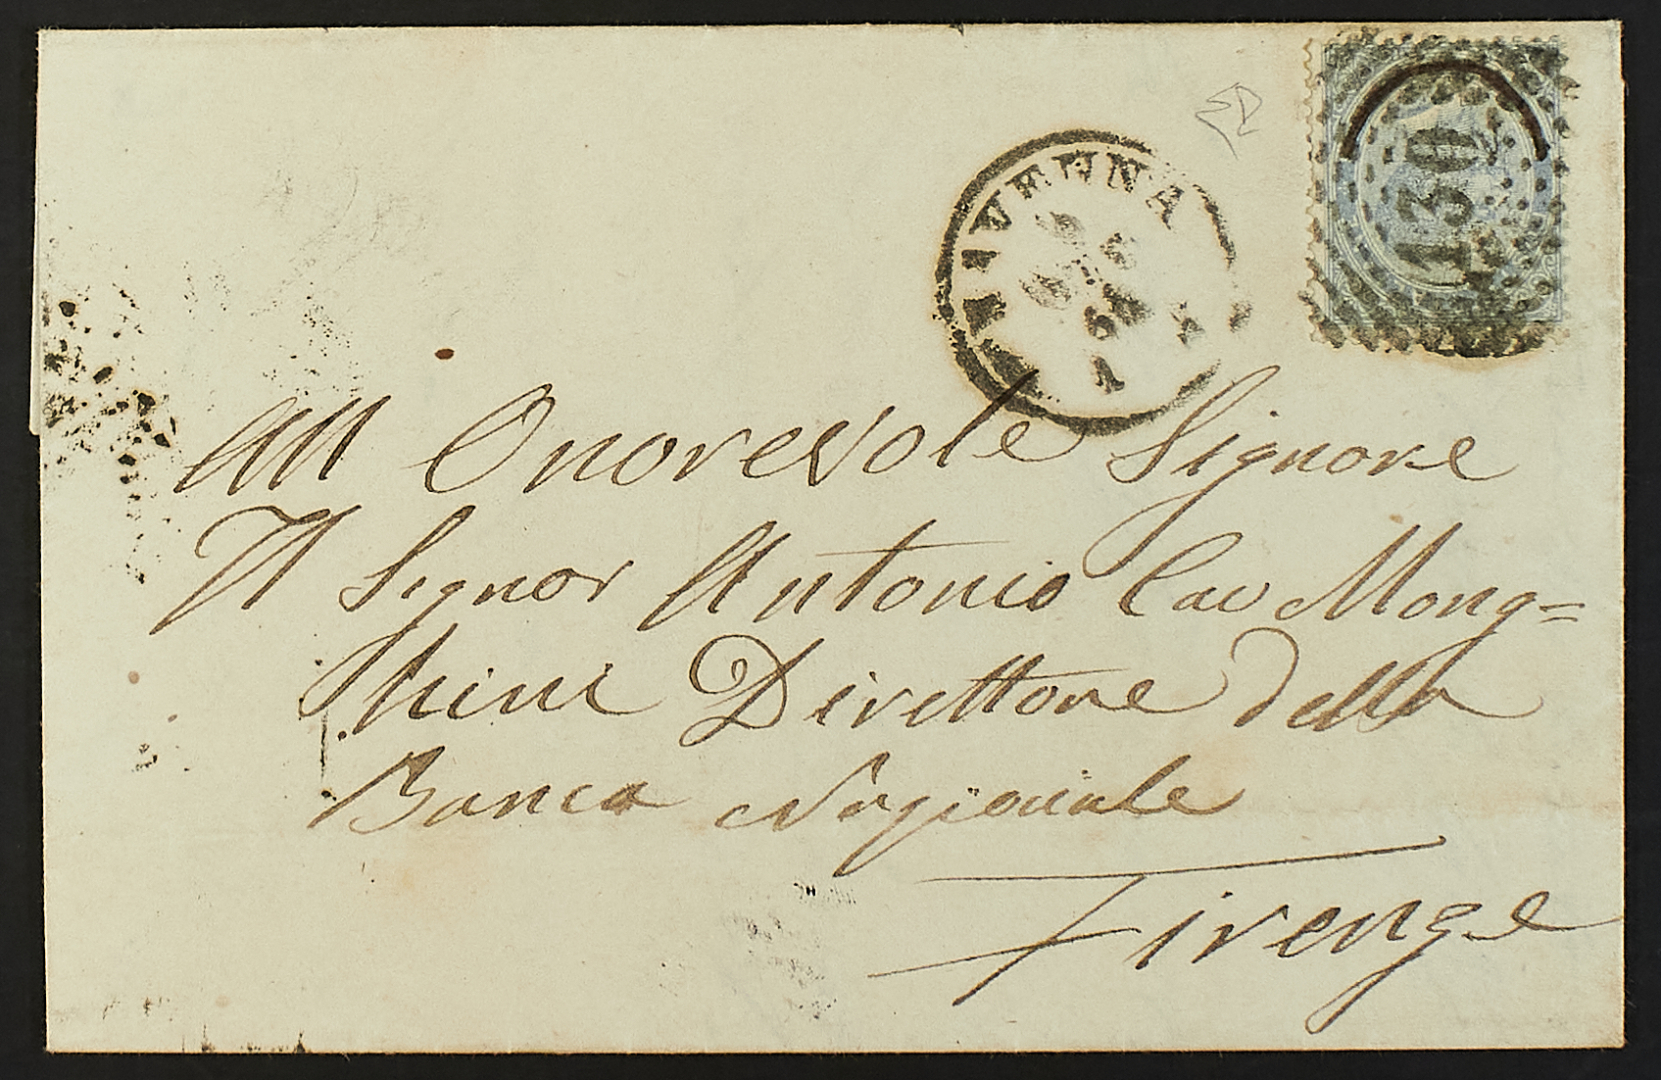 RAVENNA
130
All Onorevole Signore
Il Signor Antonio Cav Mong=
hini Direttore della
Banca Nazionale
Firenze